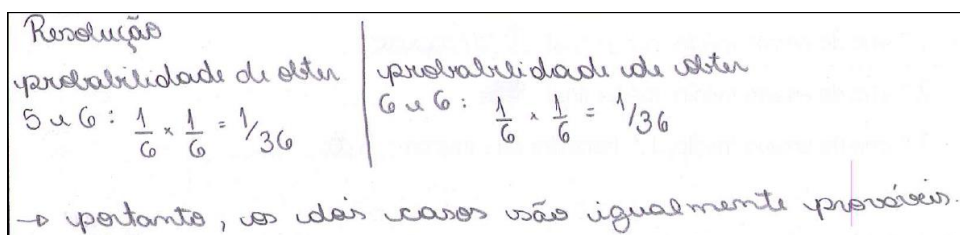 Resolução
probabilidade de obter
5 e 6: 1/6 × 1/6 = 1/36
probabilidade de obter
6 e 6: 1/6 × 1/6 = 1/36
→ portanto, os dois casos são igualmente prováveis.